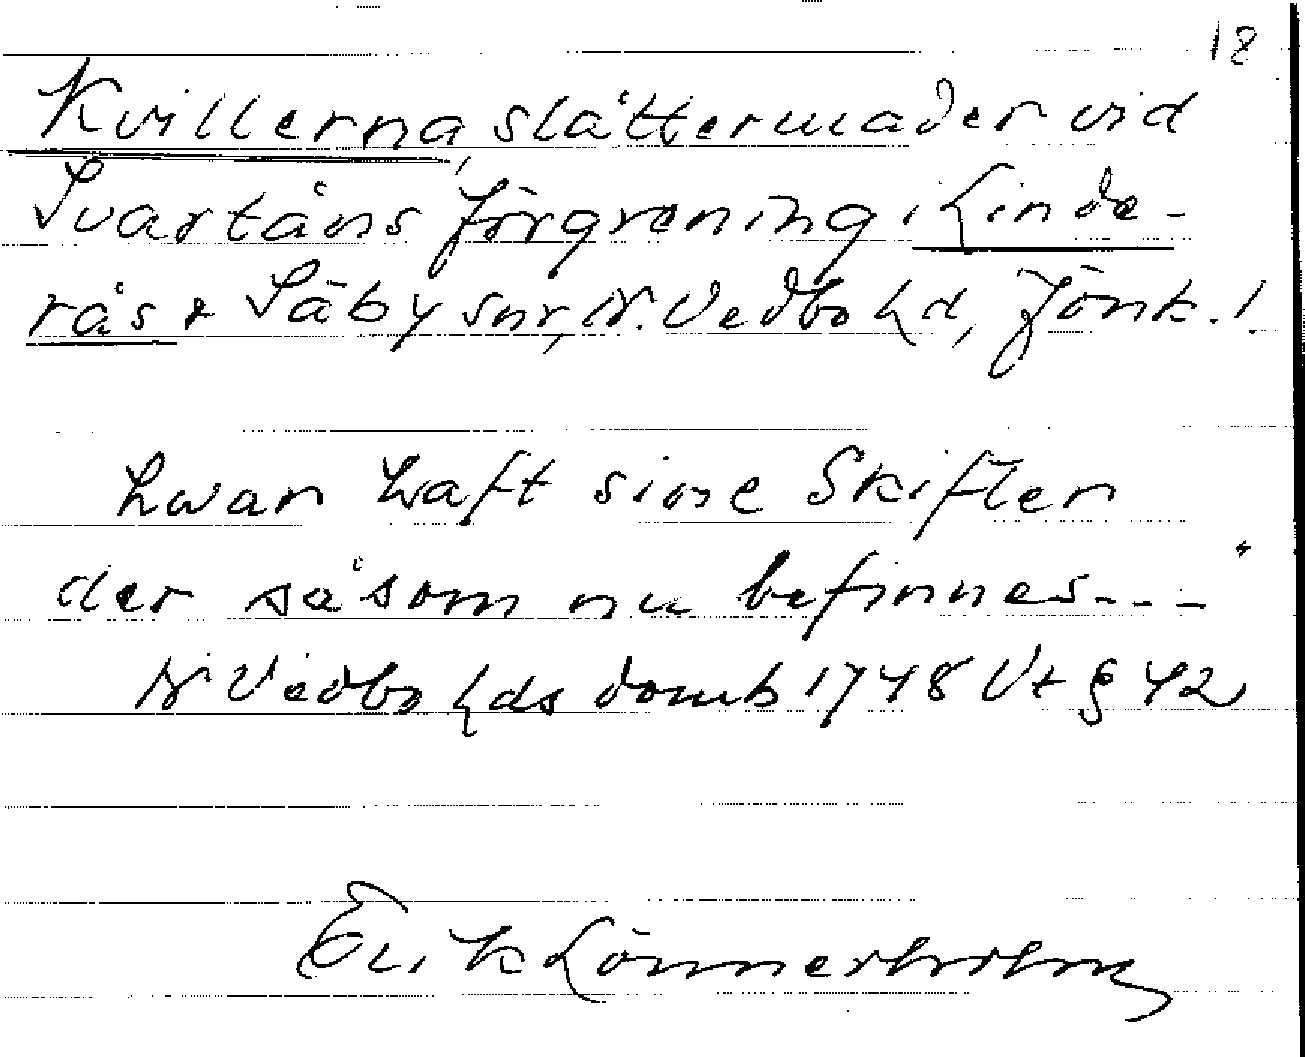 18
Kvillerna, slåttermader vid
Svartåns förgrening i Linde-
rås & Säby snr, N. Vedbo hd, Jönk. l.
hwar haft sine Skifter
der såsom nu befinnes---"
N Vedbo hds domb 1748 Vt § 42
Erik Lönnerholm